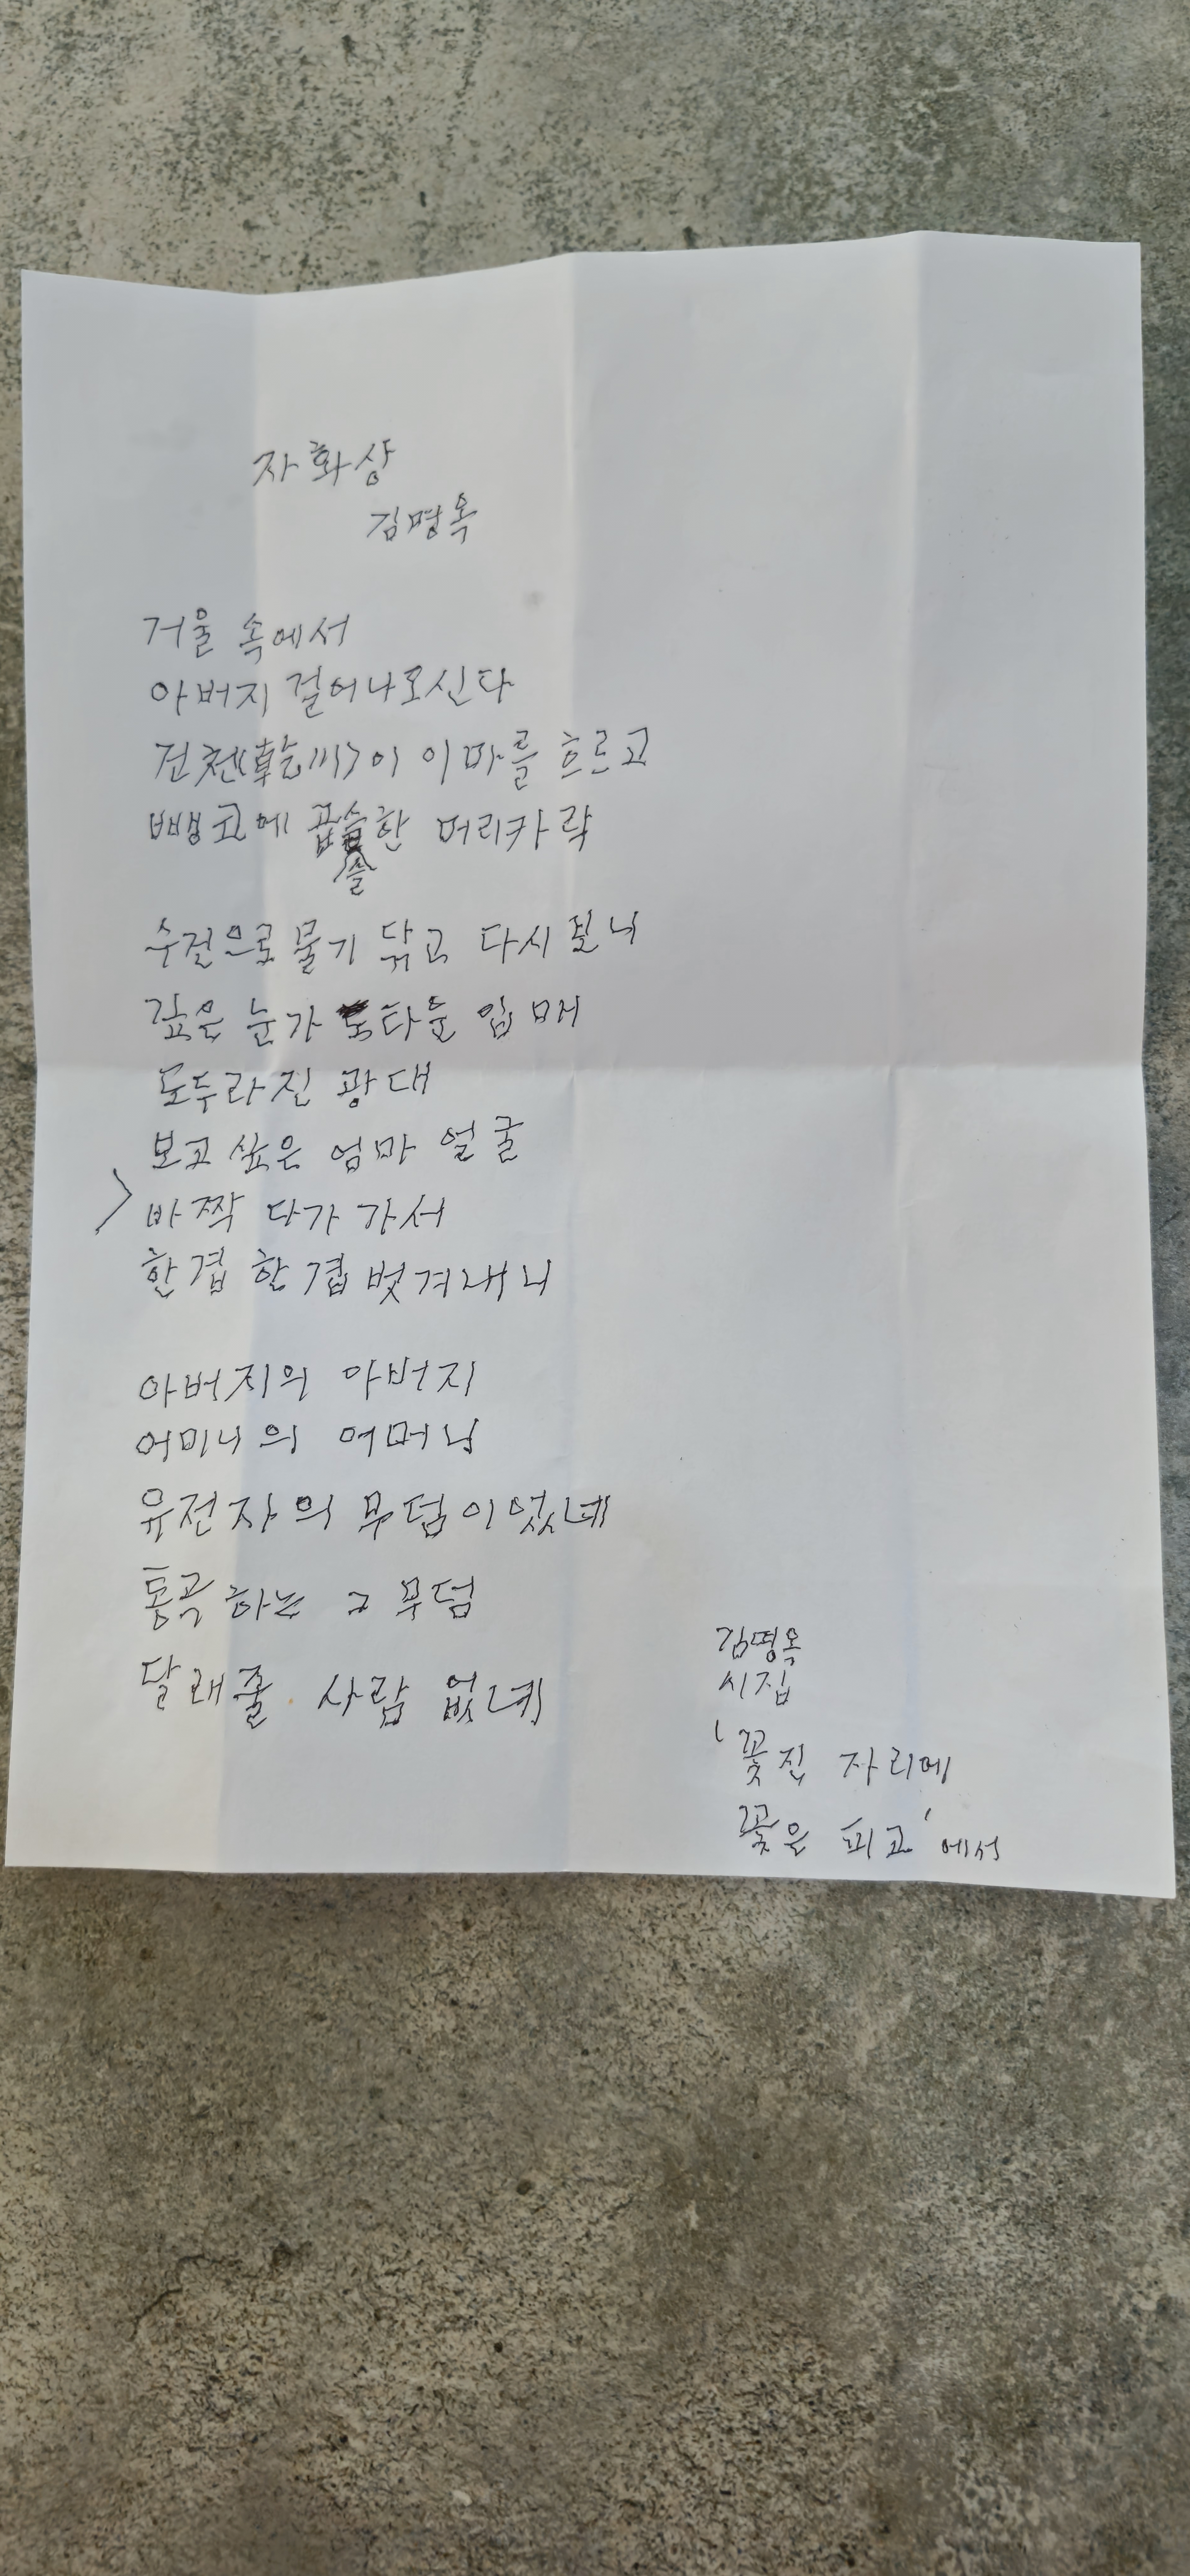 자화상
김명옥
거울 속에서
아버지 걸어나오신다
건천(乾川)이 이마를 흐르고
뺑코에 곱슬한 머리카락
수건으로 물기 닦고 다시 보니
깊은 눈가 도타운 입매
도두라진 광대
보고싶은 엄마 얼굴
바짝 다가가서
한겹 한겹 벗겨내니
아버지의 아버지
어미니의 어머님
유전자의 무덤이었네
통곡하는 그 무덤
달래줄 사람 없네
김명옥
시집
'꽃진 자리에
꽃은 피고'에서